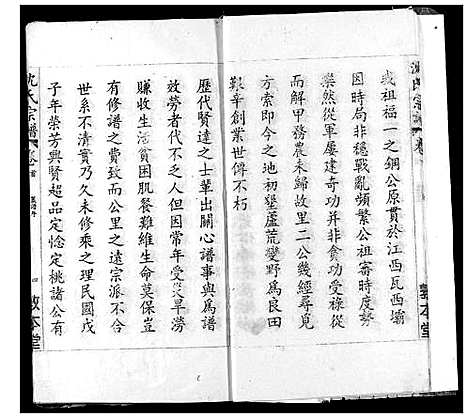 沈氏宗譜
卷
我祖福一之鋼公原貫於江西瓦西壩
因時局非穩戰亂頻繁公祖審時度勢
欒然從軍屢建奇功并非食功受祿從
而解甲務農未歸故里二公幾經尋覓
方索即今之地初墾蘆荒變野為良田
艱辛創業世傳不朽
敦本堂
歷代賢達之士輩出關心譜事與為譜
效勞者代不之人但因常年受旱勞
賺收生活貧困肌餐難維生命莫保豈
有修譜之費致而公里之遠宗派不合
世系不清實乃久未修乘之理民國戊
子年榮芳興賢超品定惗定桃諸公有
沈氏宗譜
卷首
四
敦本堂